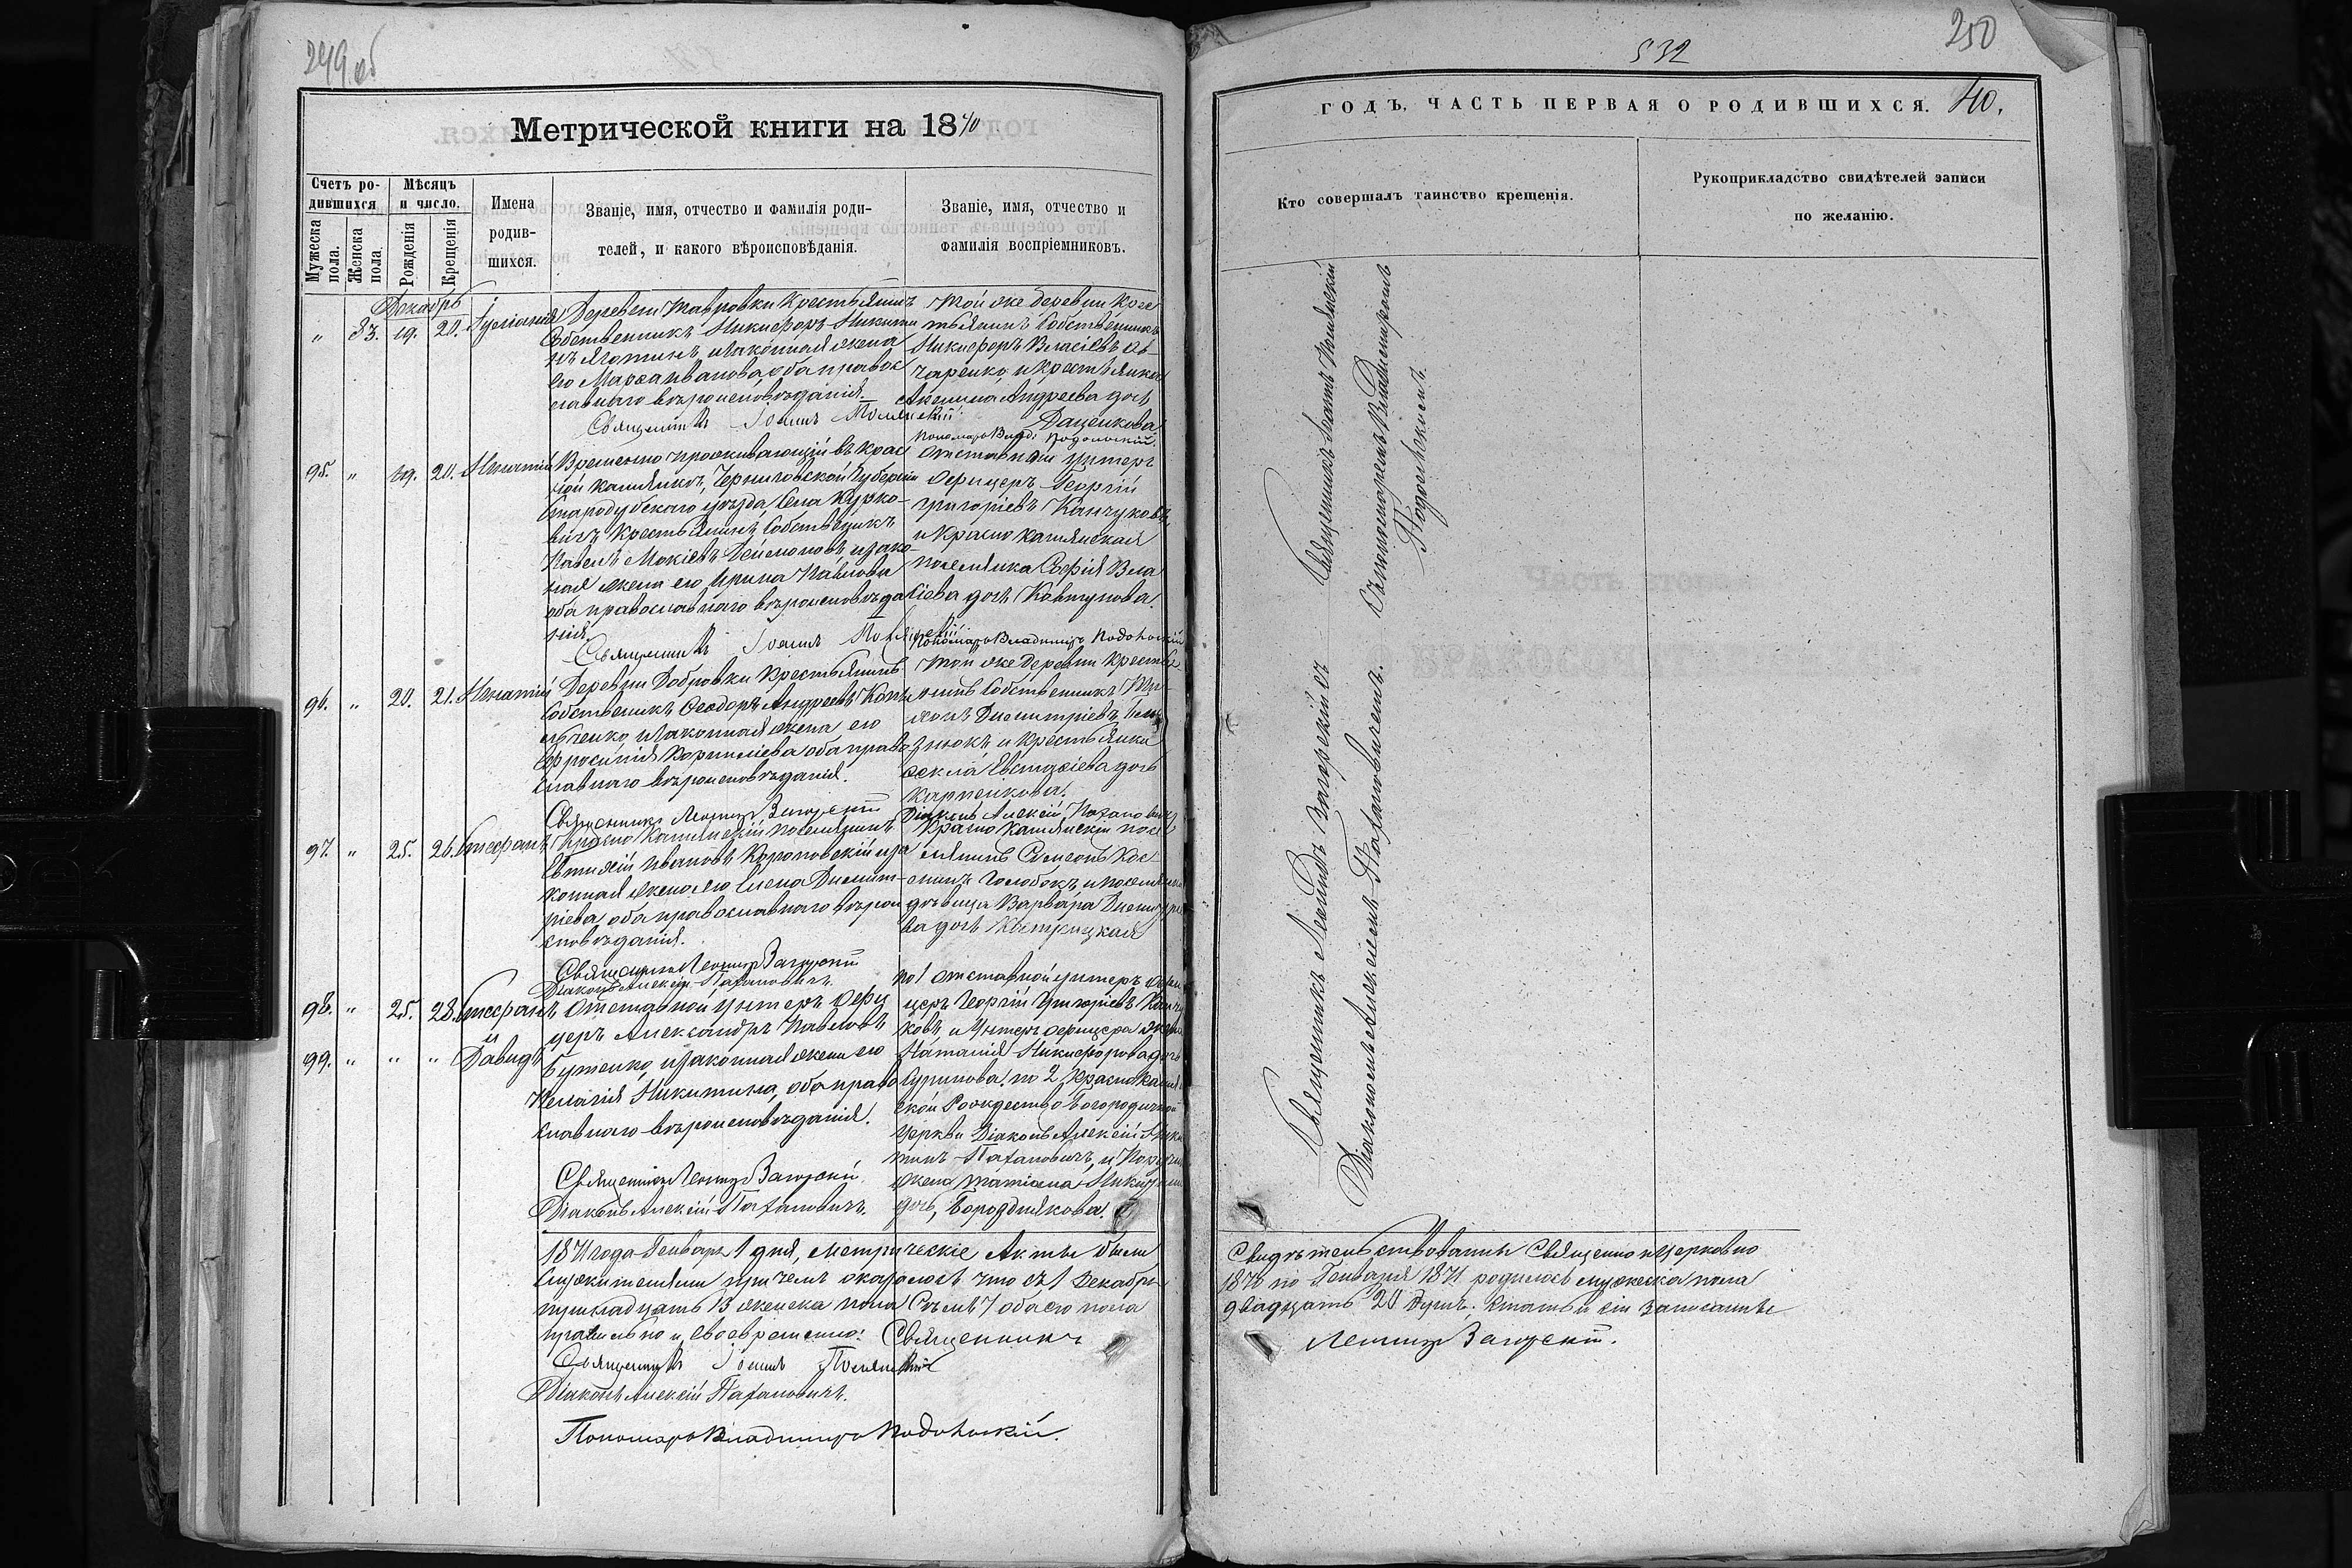 249 об
Метрической книги на 1870
Счетъ ро-
дившихся
Мѣсяцъ
и число.
Мужеска
пола.
Женска
пола.
Рожденія
Крещенія
Имена
родив-
шихся.
Званіе, имя, отчество и фамилія роди-
телей, и какого вѣроисповѣданія.
Званіе, имя, отчество и
фамилія воспріемниковъ.
Декабрь
„ 83. 19. 20. Іуліанія
Деревни Тавровки Крестьянинъ
Собственникъ Никифоръ Никити
нъ Яготинъ, и законная жена
его Марѳа Иванова, оба правос
лавнаго вѣроисповѣданія.
Священникъ Іоаннъ Полянскій
Той же деревни Крес
тьянинъ Собственникъ
Никифоръ Власіевъ Ов-
чаренко, и Крестьянка
Акилина Андреева дочь
Даценкова
Пономарь Влад: Подольскій
95. „ 19. 20. Игнатій
Временно проживающій въ Крас
ной Каменкѣ, Черниговской Губерніи
Стародубскаго уѣзда, Села Курко-
вичъ Крестьянинъ Собственникъ
Павелъ Мокіевъ, и зако-
ная жена его Ирина Павлова
оба православнаго вѣроисповѣда
нія.
Священникъ Іоаннъ Полянскій
Отставный Унтеръ
Офицеръ Георгій
Григоріевъ Канчуковъ,
и Краснокамянская
поселянка Софія Вла
сіева дочь Ковтунова.
Пономарь Владимиръ Подольскій
96. „ 20. 21. Игнатій
Деревни Добровки Крестьянинъ
Собственикъ Ѳеодоръ Андреевъ
и законная жена его
Ефросинія Корниліева оба право
славнаго вѣроисповѣданія.
Священникъ Леонидъ Загорскій
Той же деревни Крестья-
нинъ Собственникъ Ти-
хонъ Димитріевъ
и Крестьянка
Ѳекла Евстаѳіева дочь
Карпенкова.
Діаконъ Алексій Патановичъ
97. „ 25. 26. Стефанъ
Краснокамянскій поселянинъ
Евтихій Ивановъ и за
конная жена его Елена Димит-
ріева оба православнаго вѣрои
сповѣданія.
Священникъ Леонидъ Загорскій
Діаконъ Алексій Патановичъ.
Краснокамянскій посе
лянинъ Симеонъ Кос
минъ Голобокъ, и поселянка
дѣвица Варвара Димитрie
ва дочь
98. „ 25. 28. Стефанъ
и
99. „ „ „ Давидъ
Отставной Унтеръ Офи
церъ Александръ Павловъ
Бутенко, и законная жена его
Пелагія Никитина, оба право
славнаго вѣроисповѣданія.
Священникъ Леонидъ Загорскій
Діаконъ Алексій Патановичъ.
по 1 Отставной унтеръ Офи
церъ Георгій Григоріевъ Канчу
ковъ и Унтеръ офицера жена
Наталія Никифорова дочь
Сурикова. по 2, Краснокамян
ской Рождество Богородичной
Церкви Діаконъ Алексій Ники
тинъ Патановичъ, и
жена Татіана Никитина
дочь, Бороздникова.
1871 года Генваря 1 дня, метрическіе Акты были
Служителями при чемъ оказалось что съ 1 Декабря
тринадцать 13 женска пола Семь 7 обоего пола
правильно и своевременно: Священникъ
Священникъ Іоаннъ Полянскій
Діаконъ Алексій Патановичъ.
Пономарь Владимиръ Подольскій.
532
250
ГОДЪ. ЧАСТЬ ПЕРВАЯ О РОДИВШИХСЯ. 40.
Кто совершалъ таинство крещенія.
Рукоприкладство свидѣтелей записи
по желанію.
Священникъ Іоаннъ Полянскій
съ пономаремъ Владимиромъ
Подольскимъ.
Священникъ Леонидъ Загорскій съ
Діакономъ Алексіемъ Патановичемъ.
Свидѣтельствованны Священно и Церковно
1870 по Генваря 1871 родилось мужеска пола
двадцать 20 душъ. Статьи сіи записанны
Леонидъ Загорскій.